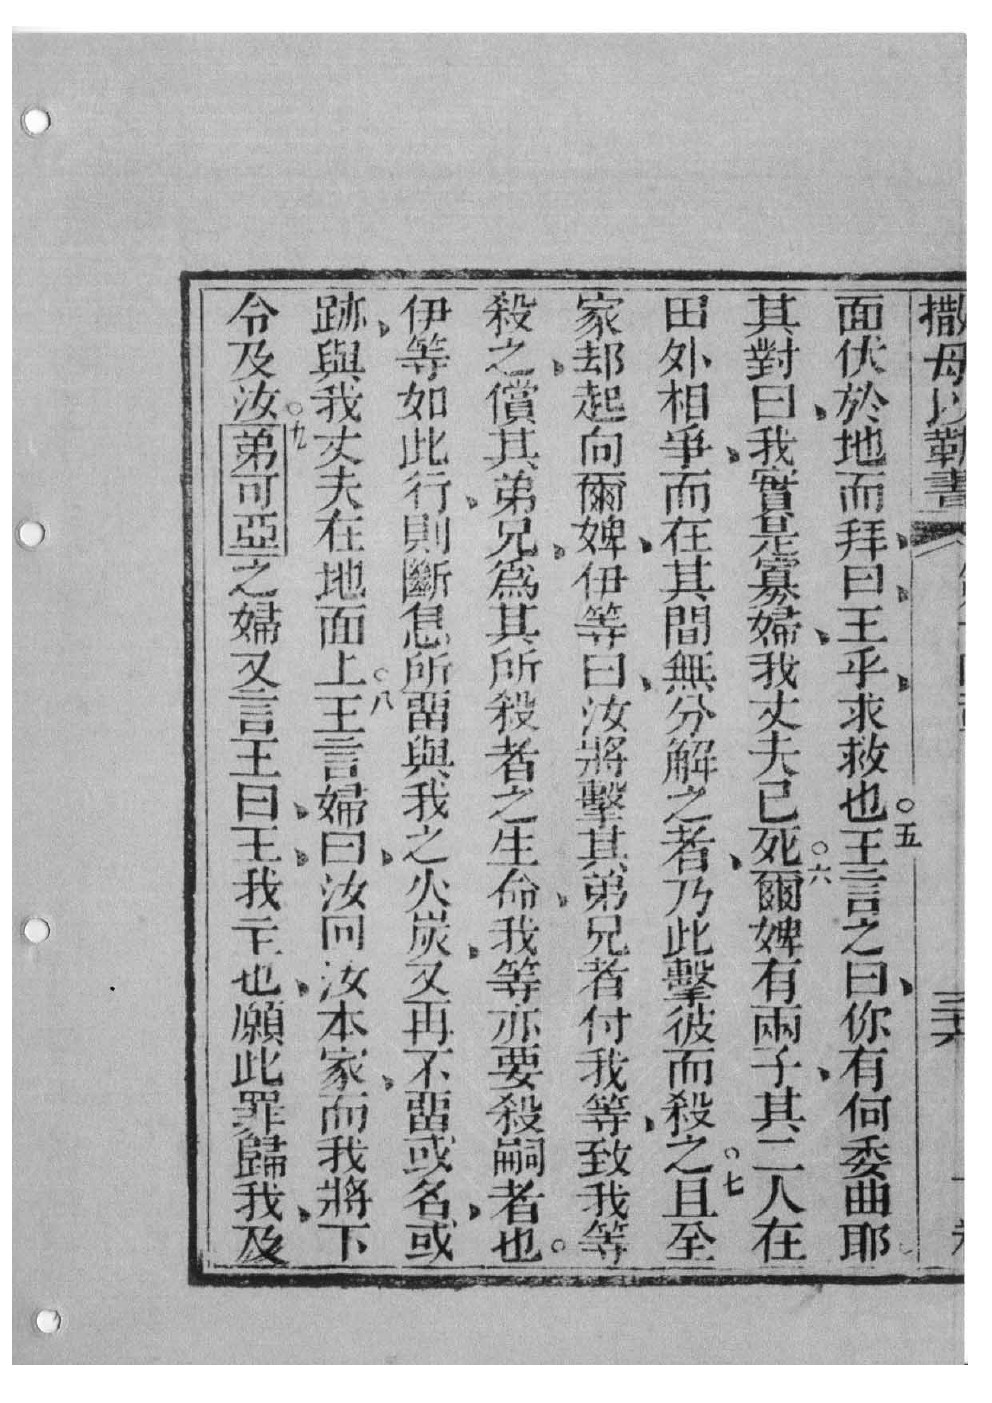 撒母以勒書
三六
面伏於地而拜、曰、王乎、求救也○五王言之曰、你有何委曲耶
其對曰、我實是寡婦、我丈夫已死○六爾婢有兩子、其二人在
田外相爭、而在其間無分解之者、乃此擊彼而殺之○七且至
家却起向爾婢、伊等曰、汝將擊其弟兄者付我等、致我等
殺之、償其弟兄、爲其所殺者之生命、我等亦要殺嗣者也。
伊等如此行、則斷息所畱與我之火炭、又再不畱或名、或
跡、與我丈夫在地面上○八王言婦曰、汝囘汝本家、而我將下
令及汝○九弟可亞之婦又言王曰、王、我主也、願此罪歸我、及